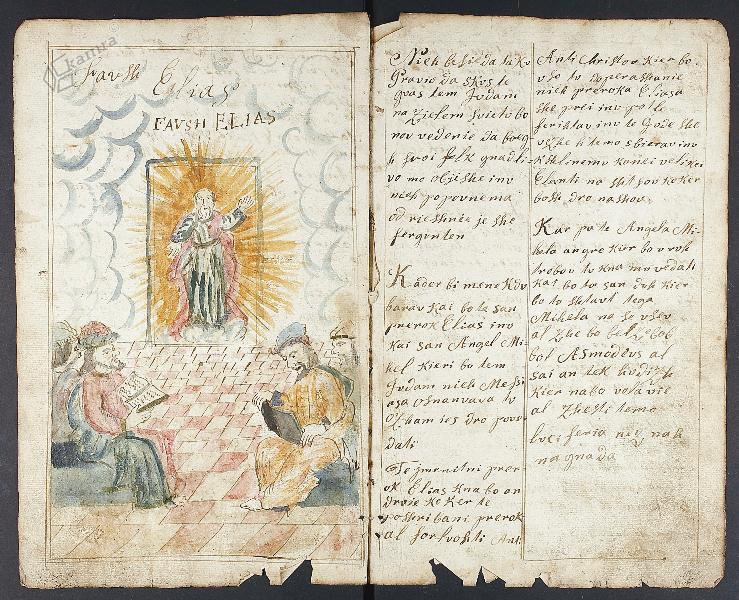 kamra
Faush Elias
FAVSH ELIAS
Nich be sie da te kv
Pravio da skos te
gvas tem Judam
na Ziel em svieto bo
nov vedenie da boeg
svoi felk gnadli
vo mo oljeske inv
nich popovnema
od rieshnie je she
fergvnten
Kader bi mene kdv
barav kai bo te san
prerok Elias inv
kai san Angel Mi
kel kieri bo tem
Judam nieh Messi
asa osnanvava tv
Ozham ies dro pove
dati
Te zmentni prer
ok Elias kna bo an
drvie ke ker te
poshribani prerok
al for hvoshti Anti
Anti Christov kier bo
vse to doperashanie
nieh preroka Eliasa
she prei inv potle
ferihtav inv te Gode she
vzhe k temo sbierav inv
k shelinemo konei veli kei
Elanti na shtshov ke ker
boshi dro nashov
Kar pa te Angela Mi
kela angre kier bo v rok
trobov tv kna mo vedati
kai bo tv san dvh kier
bo to shtavt tega
Mikela na se vsev
al zhe bo belzebob
bol ASmodevs al
sai an tek hvdizh
kier nabo vola vie
al zheshi temo
lvciferia niv nah
na gnada